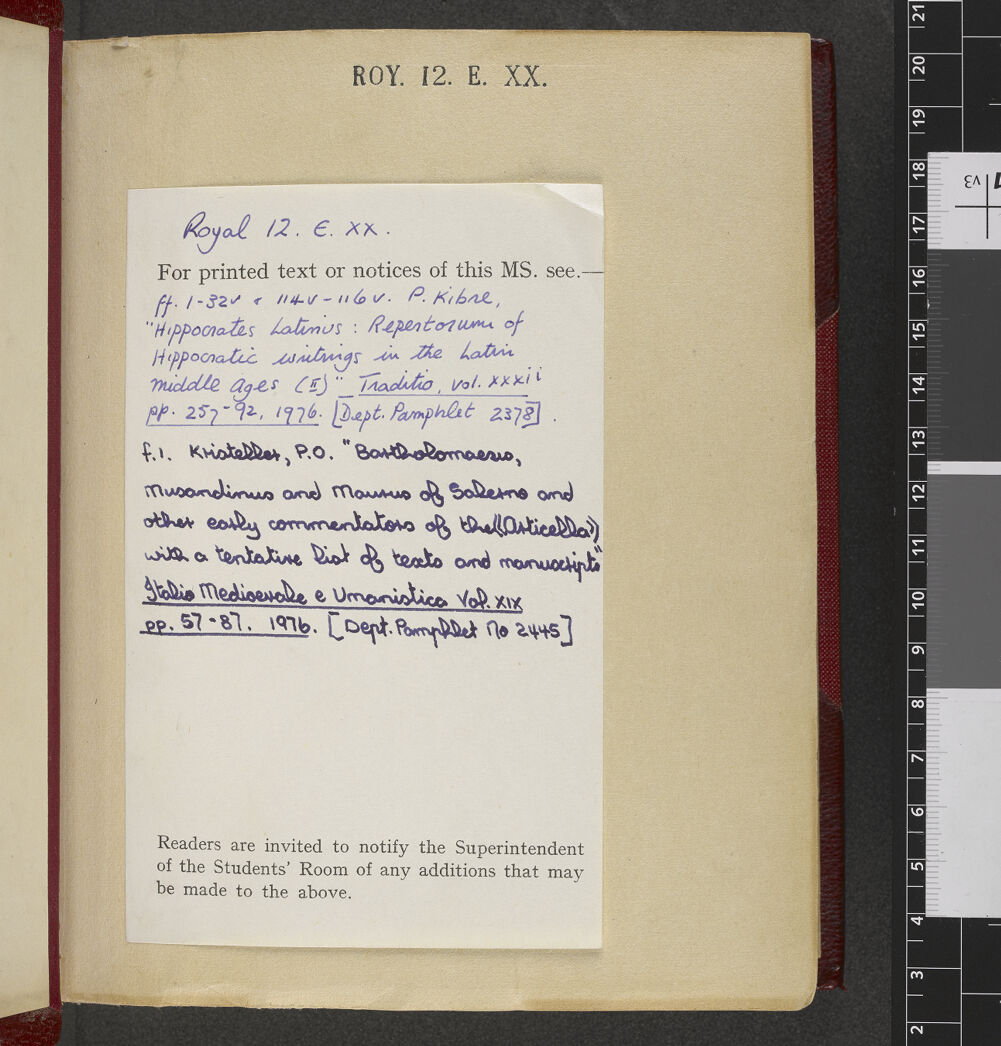 ROY. 12. E. XX.
Royal 12. E. XX.
For printed text or notices of this MS. see.—
ff. 1-32v & 114v-116v. P. Kibre,
"Hippocrates Latinus : Repertorum of
Hippocratic writings in the Latin
middle ages (II)" Traditio, vol. xxxii
pp. 257-92, 1976. [Dept. Pamphlet 2378].
f.1. Kristeller, P.O. "Bartholomaeus,
Musandinus and Maurus of Salerno and
other early commentators of the «Articella»
with a tentative list of texts and manuscripts"
Italia Medioevale e Umanistica Vol. XIX
pp. 57-87. 1976. [Dept. Pamphlet No 2445]
Readers are invited to notify the Superintendent
of the Students' Room of any additions that may
be made to the above.
21
20
19
18
17
16
15
14
13
12
11
10
9
8
7
6
5
4
3
2
v3